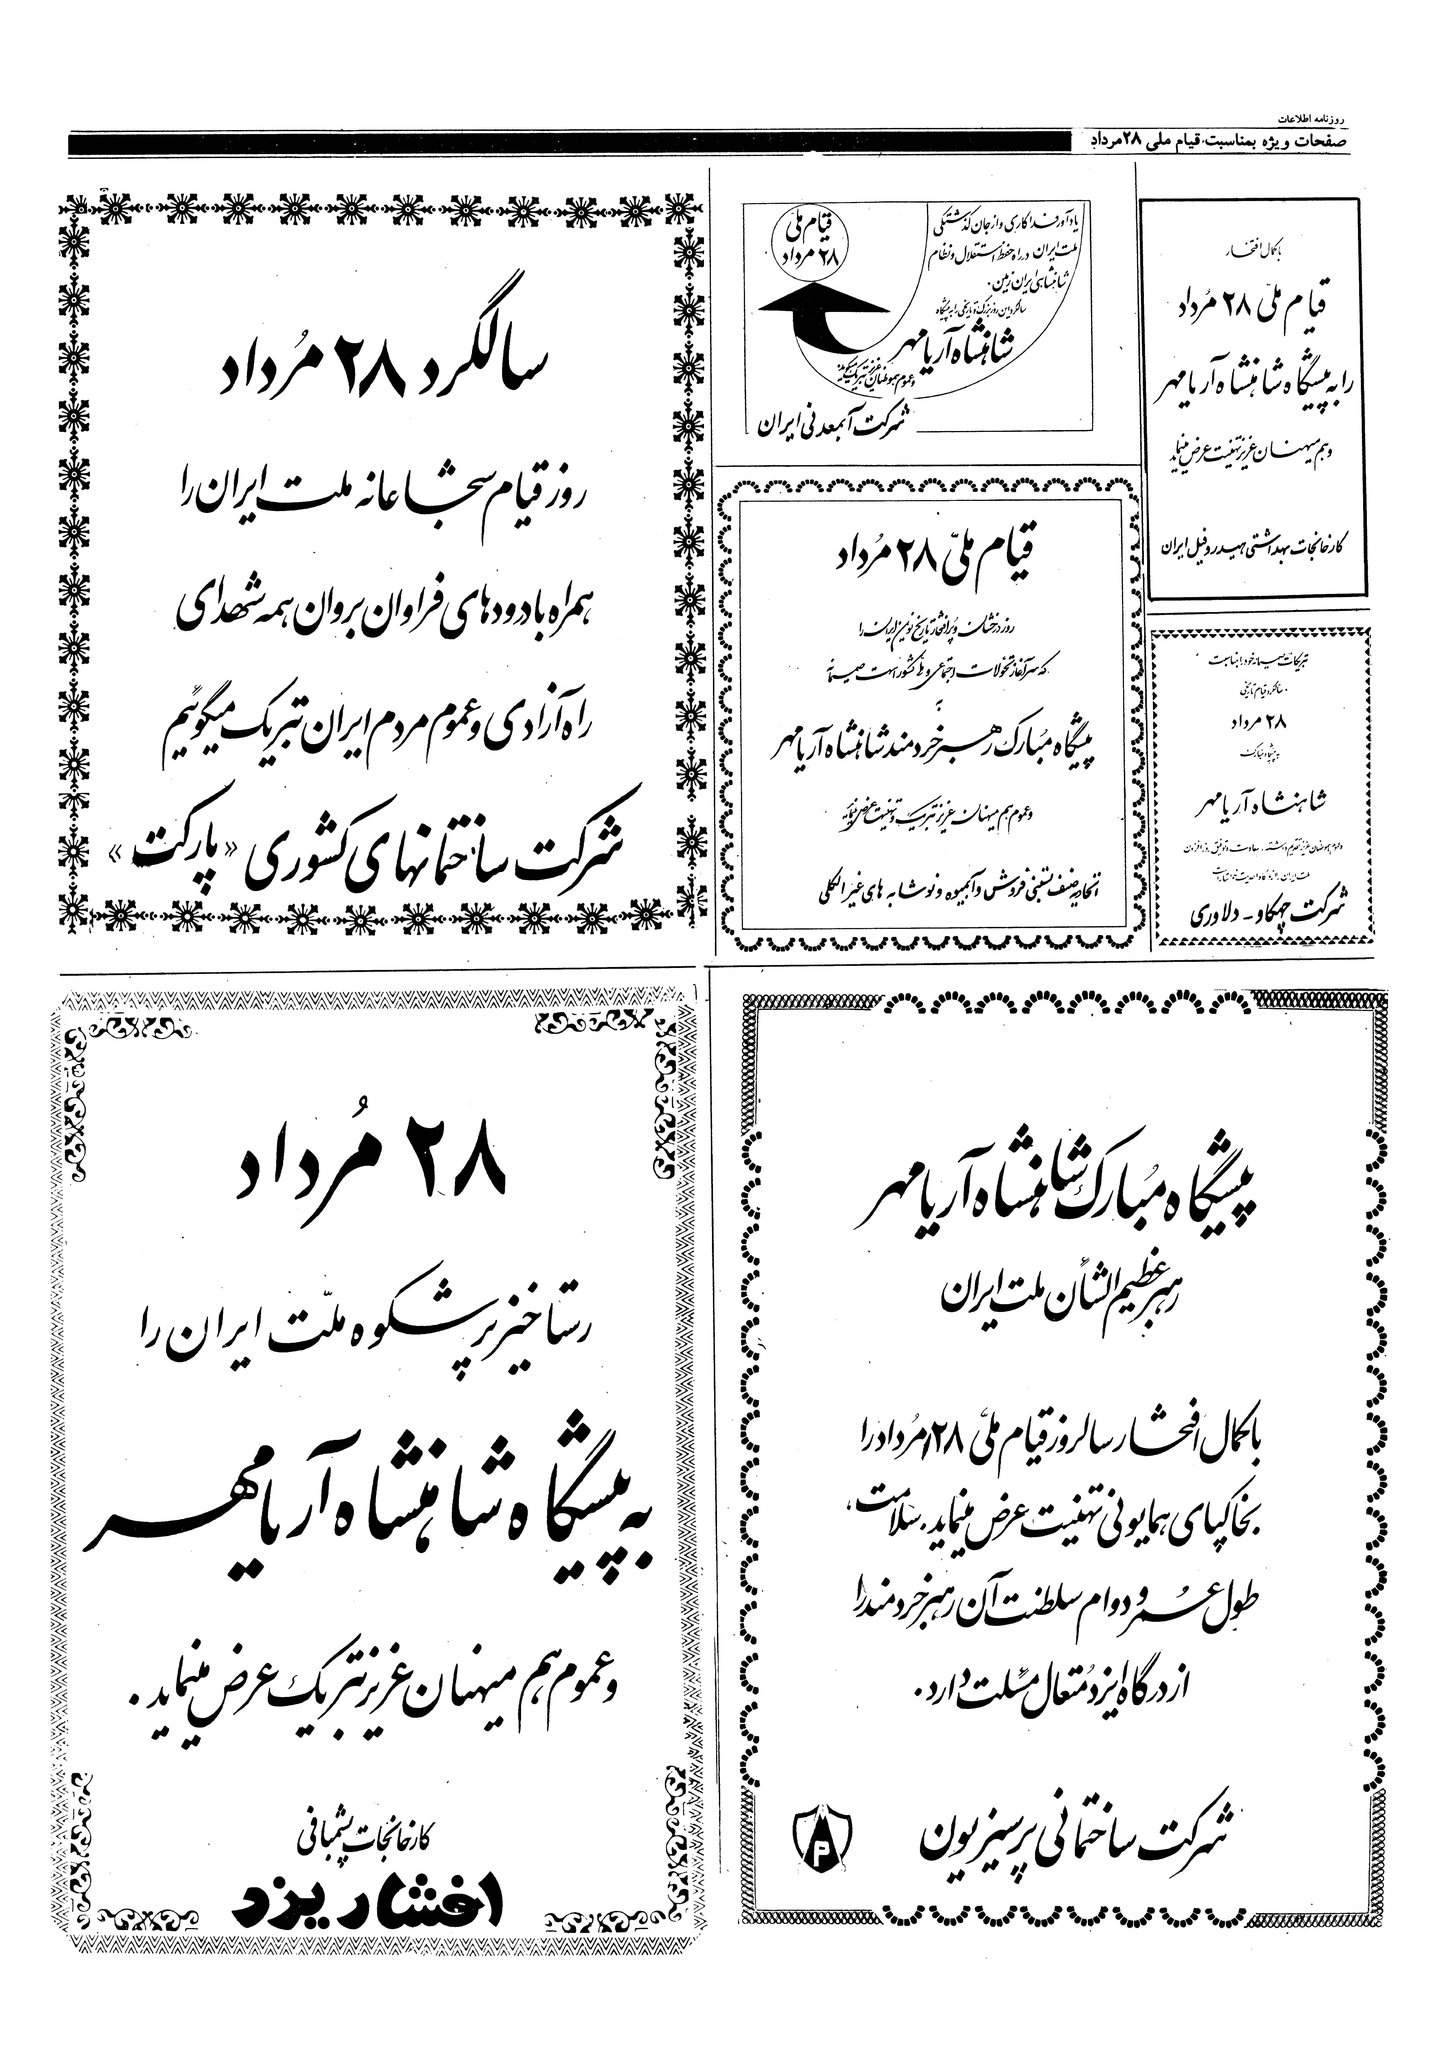 روزنامه اطلاعات
صفحات ویژه بمناسبت قیام ملی ۲۸ مرداد
باکمال افتخار
قیام ملّی ۲۸ مُرداد
را به پیشگاه شاهنشاه آریامهر
و هم میهنان عزیز تهنیت عرض مینماید
کارخانجات بهداشتی هیدروفیل ایران
قیام ملی
۲۸ مرداد
یادآور فداکاری و از جان گذشتگی
ملت ایران در راه حفظ استقلال و نظام
شاهنشاهی ایران زمین.
سالگرد این روز بزرگ و تاریخی را به پیشگاه
شاهنشاه آریامهر
و عموم هموطنان عزیز تبریک میگوید
شرکت آبمعدنی ایران
سالگرد ۲۸ مُرداد
روز قیام شجاعانه ملت ایران را
همراه با درودهای فراوان بروان همه شهدای
راه آزادی و عموم مردم ایران تبریک میگوئیم
شرکت ساختمانهای کشوری «پارکت»
قیام ملّی ۲۸ مُرداد
روز درخشان و پرافتخار تاریخ نوین ایران را
که سرآغاز تحولات اجتماعی و ملی کشور است صمیمانه
به
پیشگاه مُبارک رهبر خردمند شاهنشاه آریامهر
و عموم هم میهنان عزیز تبریک و تهنیت عرض مینماید
اتحادیه صنف بستنی فروش و آبمیوه و نوشابه های غیر الکلی
تبریکات صمیمانه خود را بمناسبت
سالگرد قیام تاریخی
۲۸ مرداد
به پیشگاه مبارک
شاهنشاه آریامهر
و عموم هموطنان عزیز تقدیم داشته، سعادت و توفیق روزافزون
شرکت چهکاو - دلاوری
پیشگاه مُبارک شاهنشاه آریامهر
رهبر عظیم الشأن ملت ایران
باکمال افتخار سالروز قیام ملّی ۲۸ مُرداد را
بخاکپای همایونی تهنیت عرض مینماید. سلامت،
طول عمر و دوام سلطنت آن رهبر خردمند را
از درگاه ایزد مُتعال مسئلت دارد.
شرکت ساختمانی پرسیزیون
P
۲۸ مُرداد
رستاخیز پرشکوه ملّت ایران را
به پیشگاه شاهنشاه آریامهر
و عموم هم میهنان عزیز تبریک عرض مینماید.
کارخانجات پشمبافی
افشار یزد